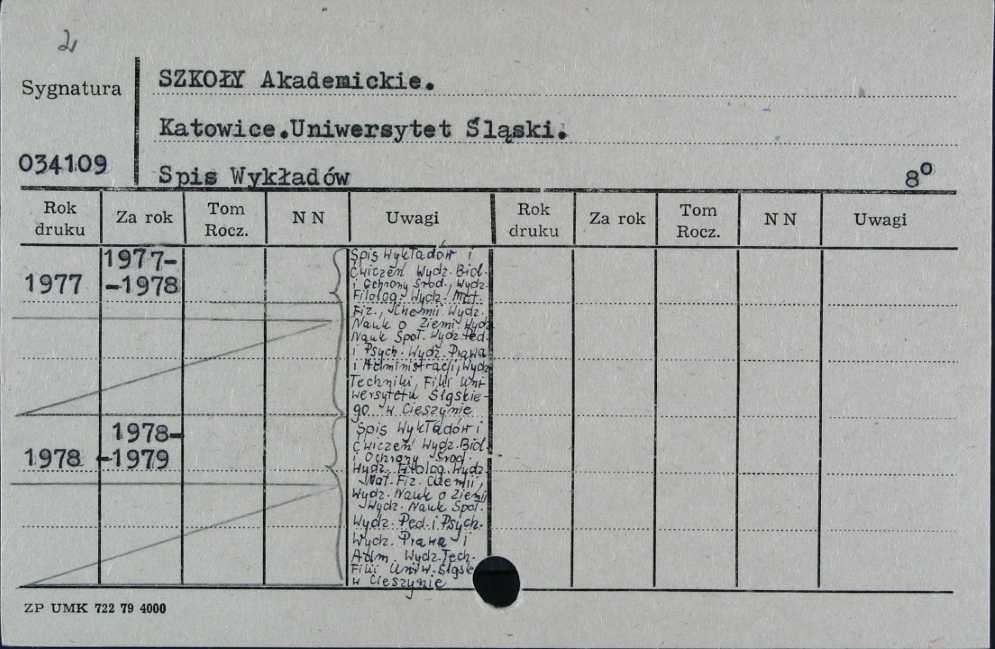 2
Sygnatura
SZKOŁY Akademickie.
Katowice.Uniwersytet Śląski.
034109
Spis Wykładów
8°
Rok druku
Za rok
Tom Rocz.
N N
Uwagi
Rok druku
Za rok
Tom Rocz.
N N
Uwagi
1977
1977-
-1978
Spis Wykładów i
Ćwiczeń Wydz. Biol.
i Ochrony Środ., Wydz.
Filolog. Wydz. Mat.
Fiz., Chemii Wydz.
Nauk o Ziemi Wydz
Nauk Społ. Wydz Ped.
i Psych. Wydz. Prawa
i Administracji, Wydz
Techniki, Filii Uni-
wersytetu Śląskie-
go w Cieszynie
1978
1978-
-1979
Spis Wykładów i
Ćwiczeń Wydz. Biol.
i Ochrony Środ.
Wydz. Filolog. Wydz.
Mat. Fiz. Chemii,
Wydz. Nauk o Ziemi
Wydz. Nauk Społ.
Wydz. Ped. i Psych.
Wydz. Prawa i
Adm. Wydz. Tech.
Filii Uniw. Śląskie
w Cieszynie
ZP UMK 722 79 4000